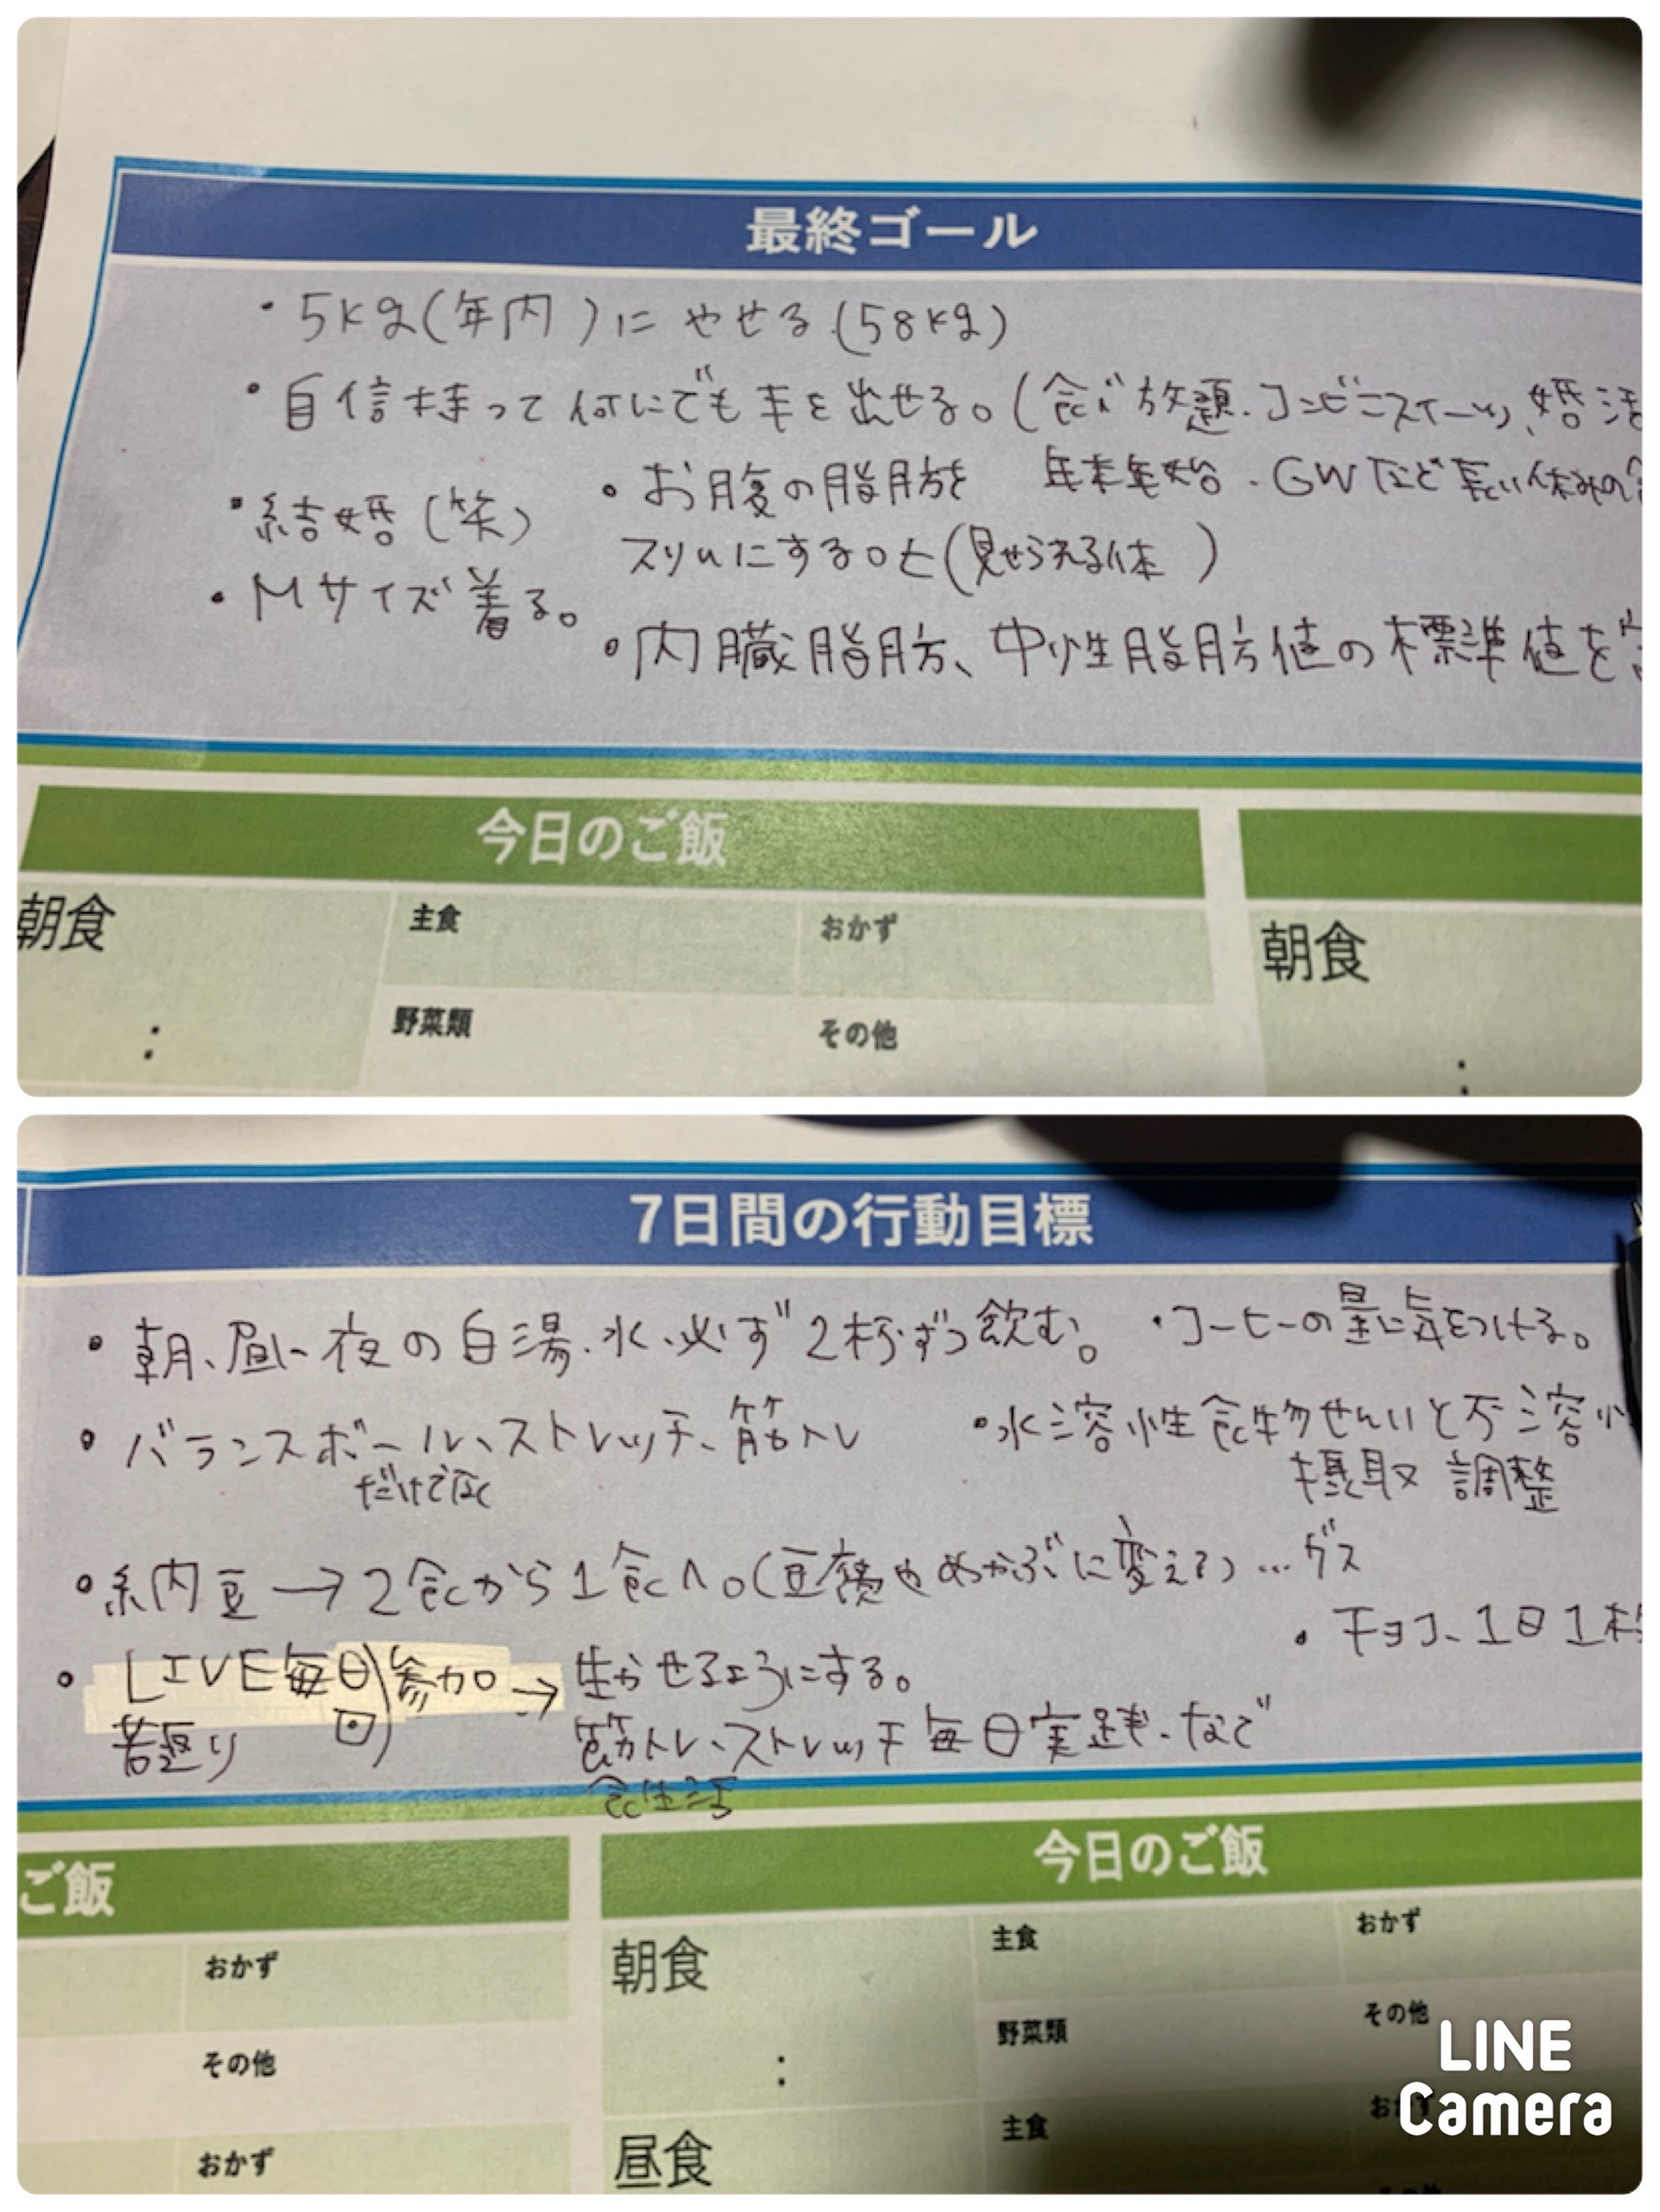 最終ゴール
・5kg(年内)に やせる(58kg)
・自信持って何にでも手を出せる。(食べ放題.コンビニスイーツ、婚活
年末年始.GWなど長い休みの
・結婚(笑)
・Mサイズ着る。
・お腹の脂肪を
スリムにする。と(見せられる体 )
・内臓脂肪、中性脂肪値の標準値を
今日のご飯
朝食
主食
おかず
野菜類
その他
:
朝食
:
7日間の行動目標
・朝、昼、夜の白湯.水、必ず2杯ずつ飲む。 ・コーヒーの量に気をつける。
・バランスボール、ストレッチ、筋トレ
だけでなく
・水溶性食物せんいと不溶性
摂取 調整
・納豆→2食から1食へ。(豆腐やめかぶに変える)…ガス
・チョコ、1日1
・LIVE毎日参加→生かせるようにする。
若返り 回
筋トレ、ストレッチ毎日実践.など
食生活
ご飯
おかず
その他
おかず
今日のご飯
朝食
主食
おかず
野菜類
その他
:
昼食
主食
LINE
Camera